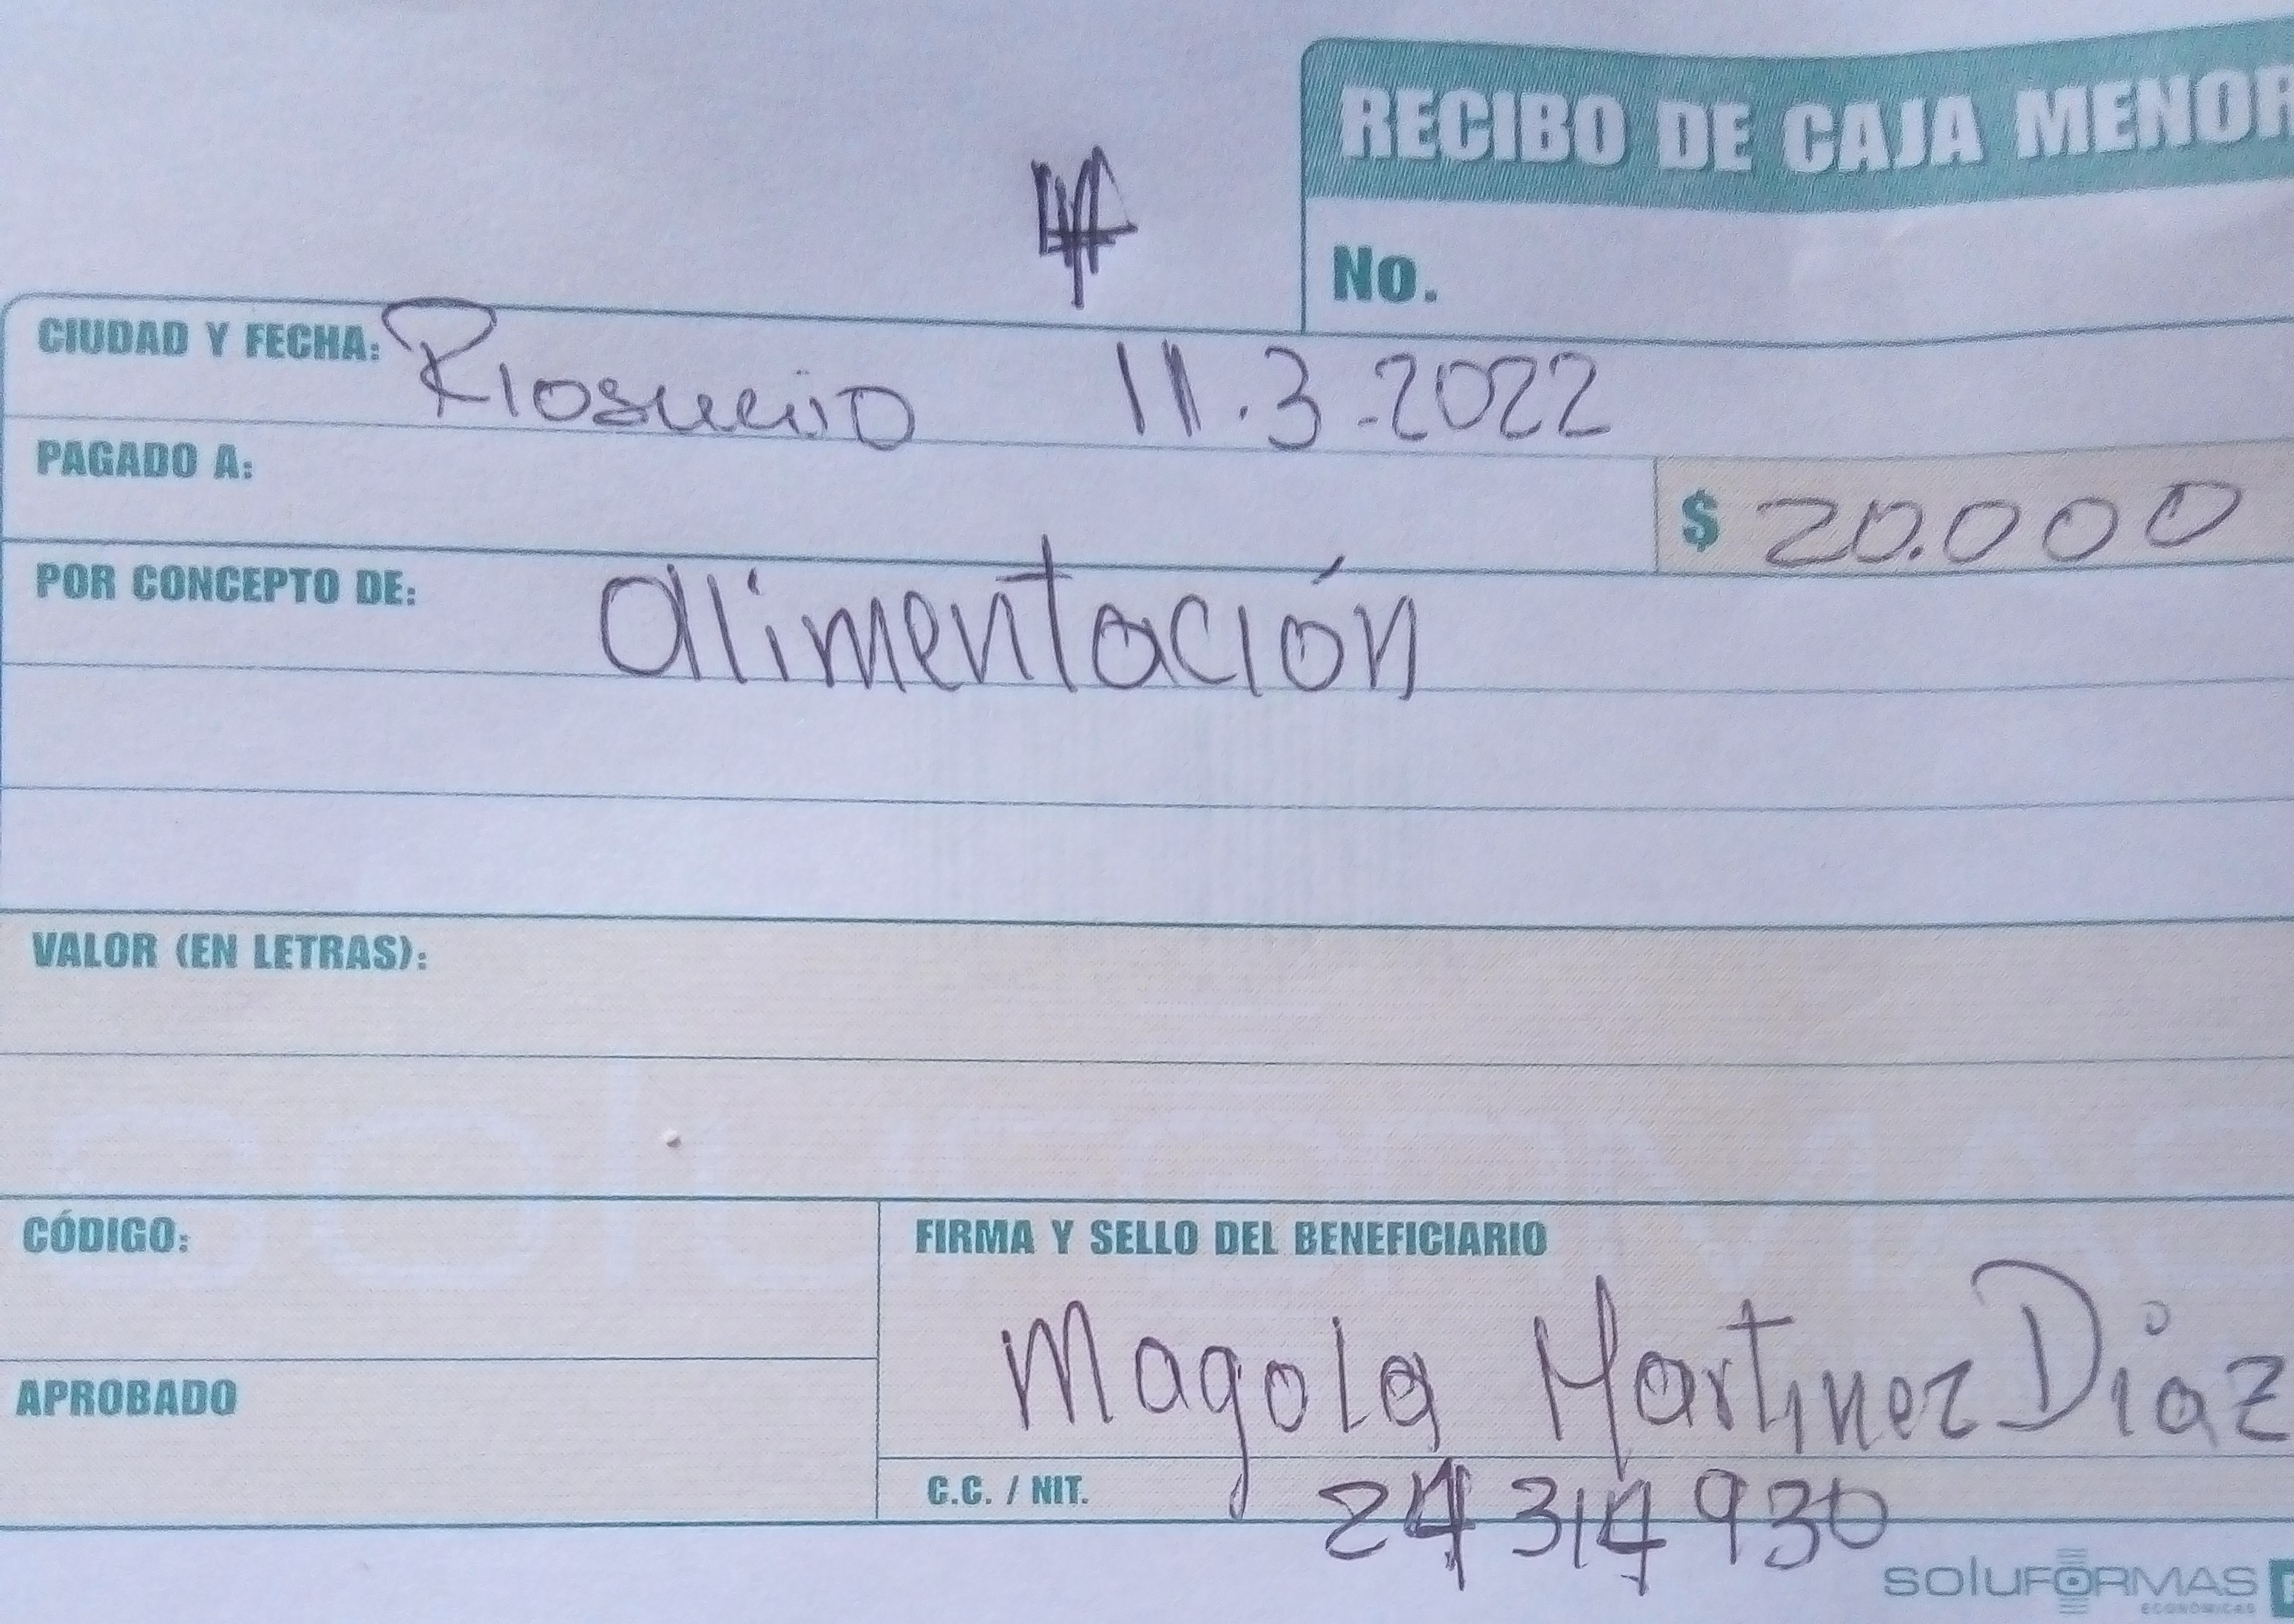 RECIBO DE CAJA MENOR
No.
4
CIUDAD Y FECHA: Riosucio 11.3-2022
PAGADO A:
$ 20.000
POR CONCEPTO DE: alimentación
VALOR (EN LETRAS):
CÓDIGO:
FIRMA Y SELLO DEL BENEFICIARIO
Magola Martinez Diaz
APROBADO
C.C. / NIT. 24314930
SOLUFORMAS
ECONÓMICAS